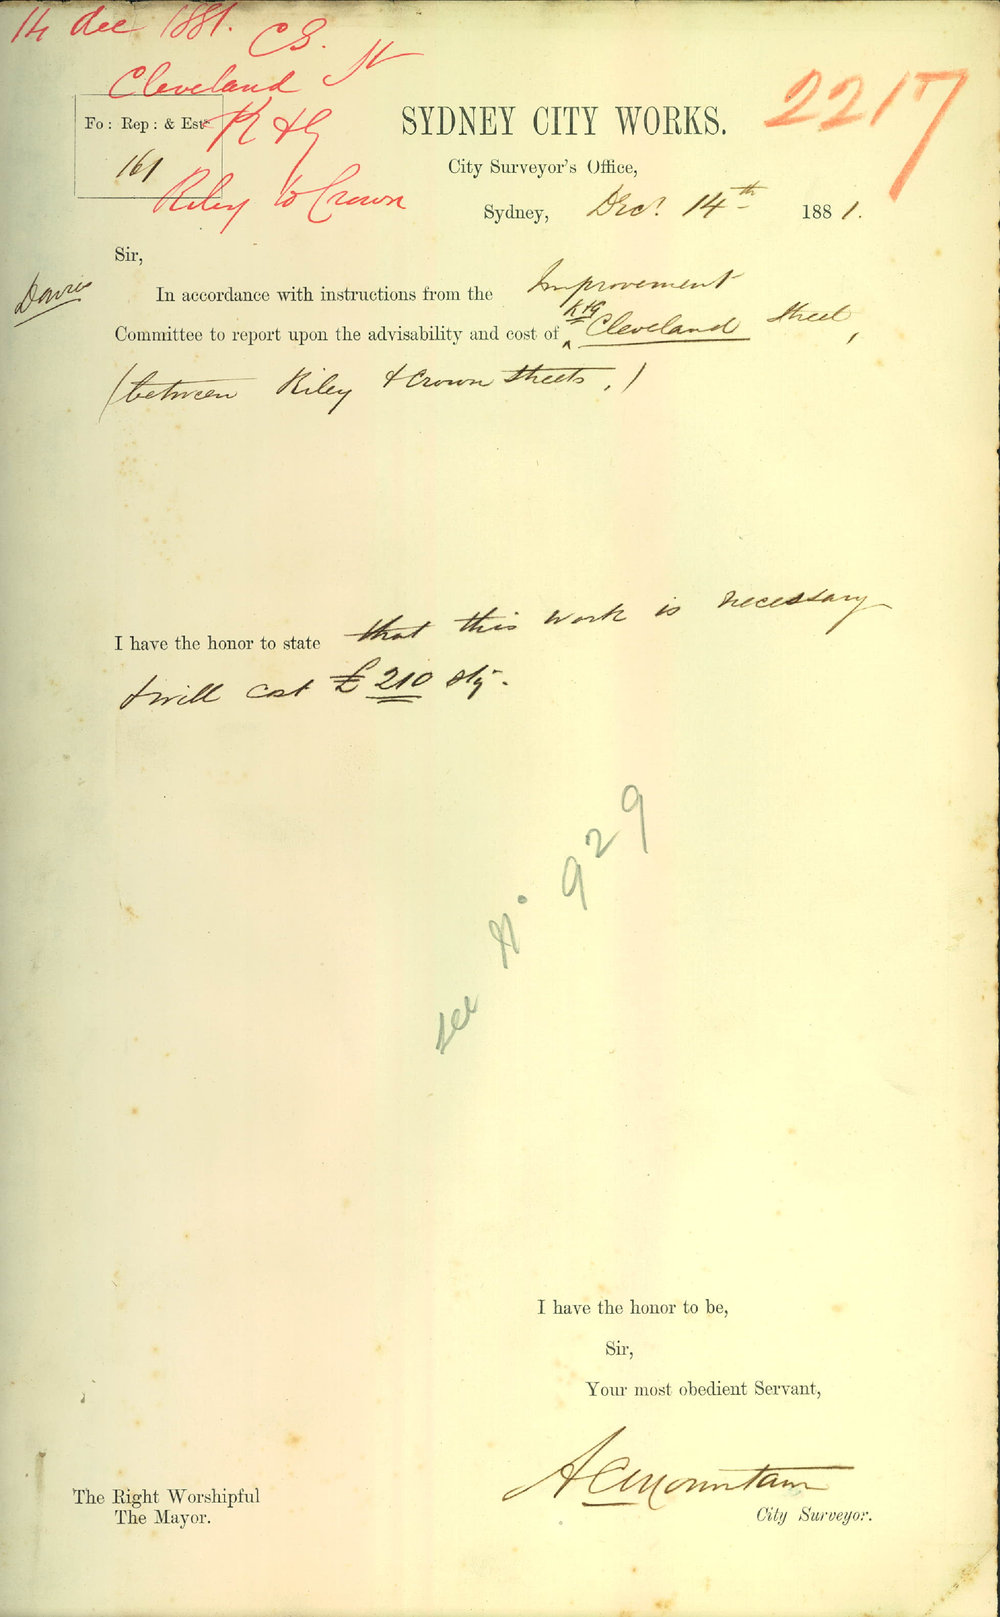 14 dec 1881. CS.
Cleveland St
K & G
Riley to Crown
2217
Fo: Rep: & Este
161
SYDNEY CITY WORKS.
City Surveyor's Office,
Sydney, Decr. 14th 1881.
Sir,
Davies
In accordance with instructions from the Improvement
Committee to report upon the advisability and cost of K & G Cleveland Street,
(between Riley & Crown Streets.)
I have the honor to state that this work is necessary
& will cost £210 stg.
see No 929
I have the honor to be,
Sir,
Your most obedient Servant,
A C Mountain
City Surveyor.
The Right Worshipful
The Mayor.